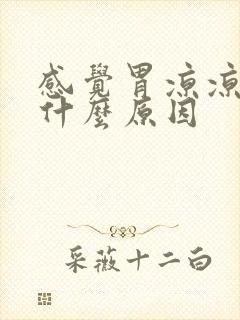 感覺胃涼涼
什麼原因
采薇十二白